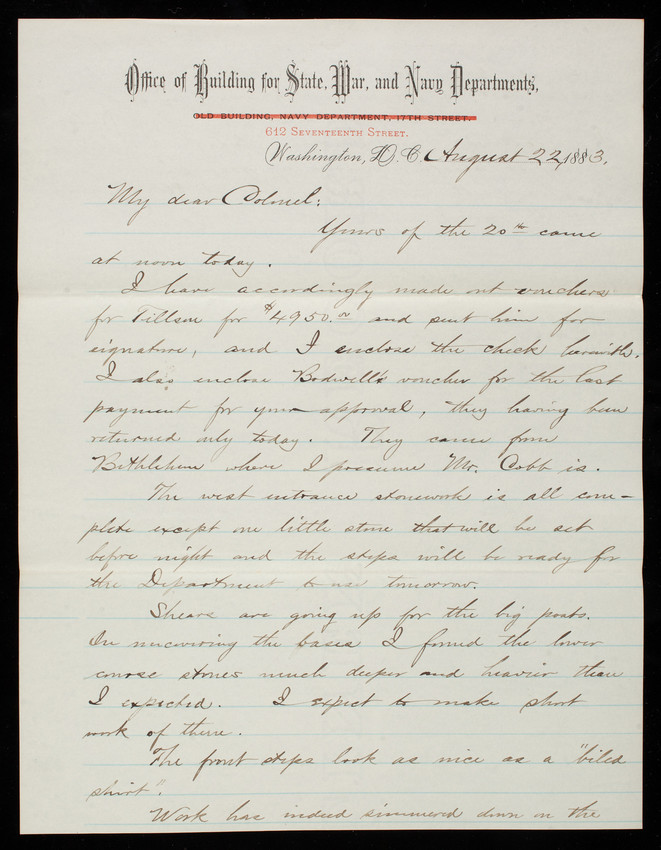 Office of Building for State, War, and Navy Departments,
OLD BUILDING, NAVY DEPARTMENT, 17TH STREET.
612 SEVENTEENTH STREET.
Washington, D. C. August 22, 1883.
My dear Colonel:
Yours of the 20th came
at noon today.
I have accordingly made out vouchers
for Tillson for $4950.00 and sent him for
signature, and I enclose the check herewith.
I also enclose Bodwell's voucher for the last
payment for your approval, they having been
returned only today. They came from
Bethlehem where I presume Mr. Cobb is.
The west entrance stonework is all com-
plete except one little stone that will be set
before night and the steps will be ready for
the Department to use tomorrow.
Shears are going up for the big posts.
In uncovering the bases I found the lower
course stones much deeper and heavier than
I expected. I expect to make short
work of them.
The front steps look as nice as a "biled
shirt".
Work has indeed simmered down on the